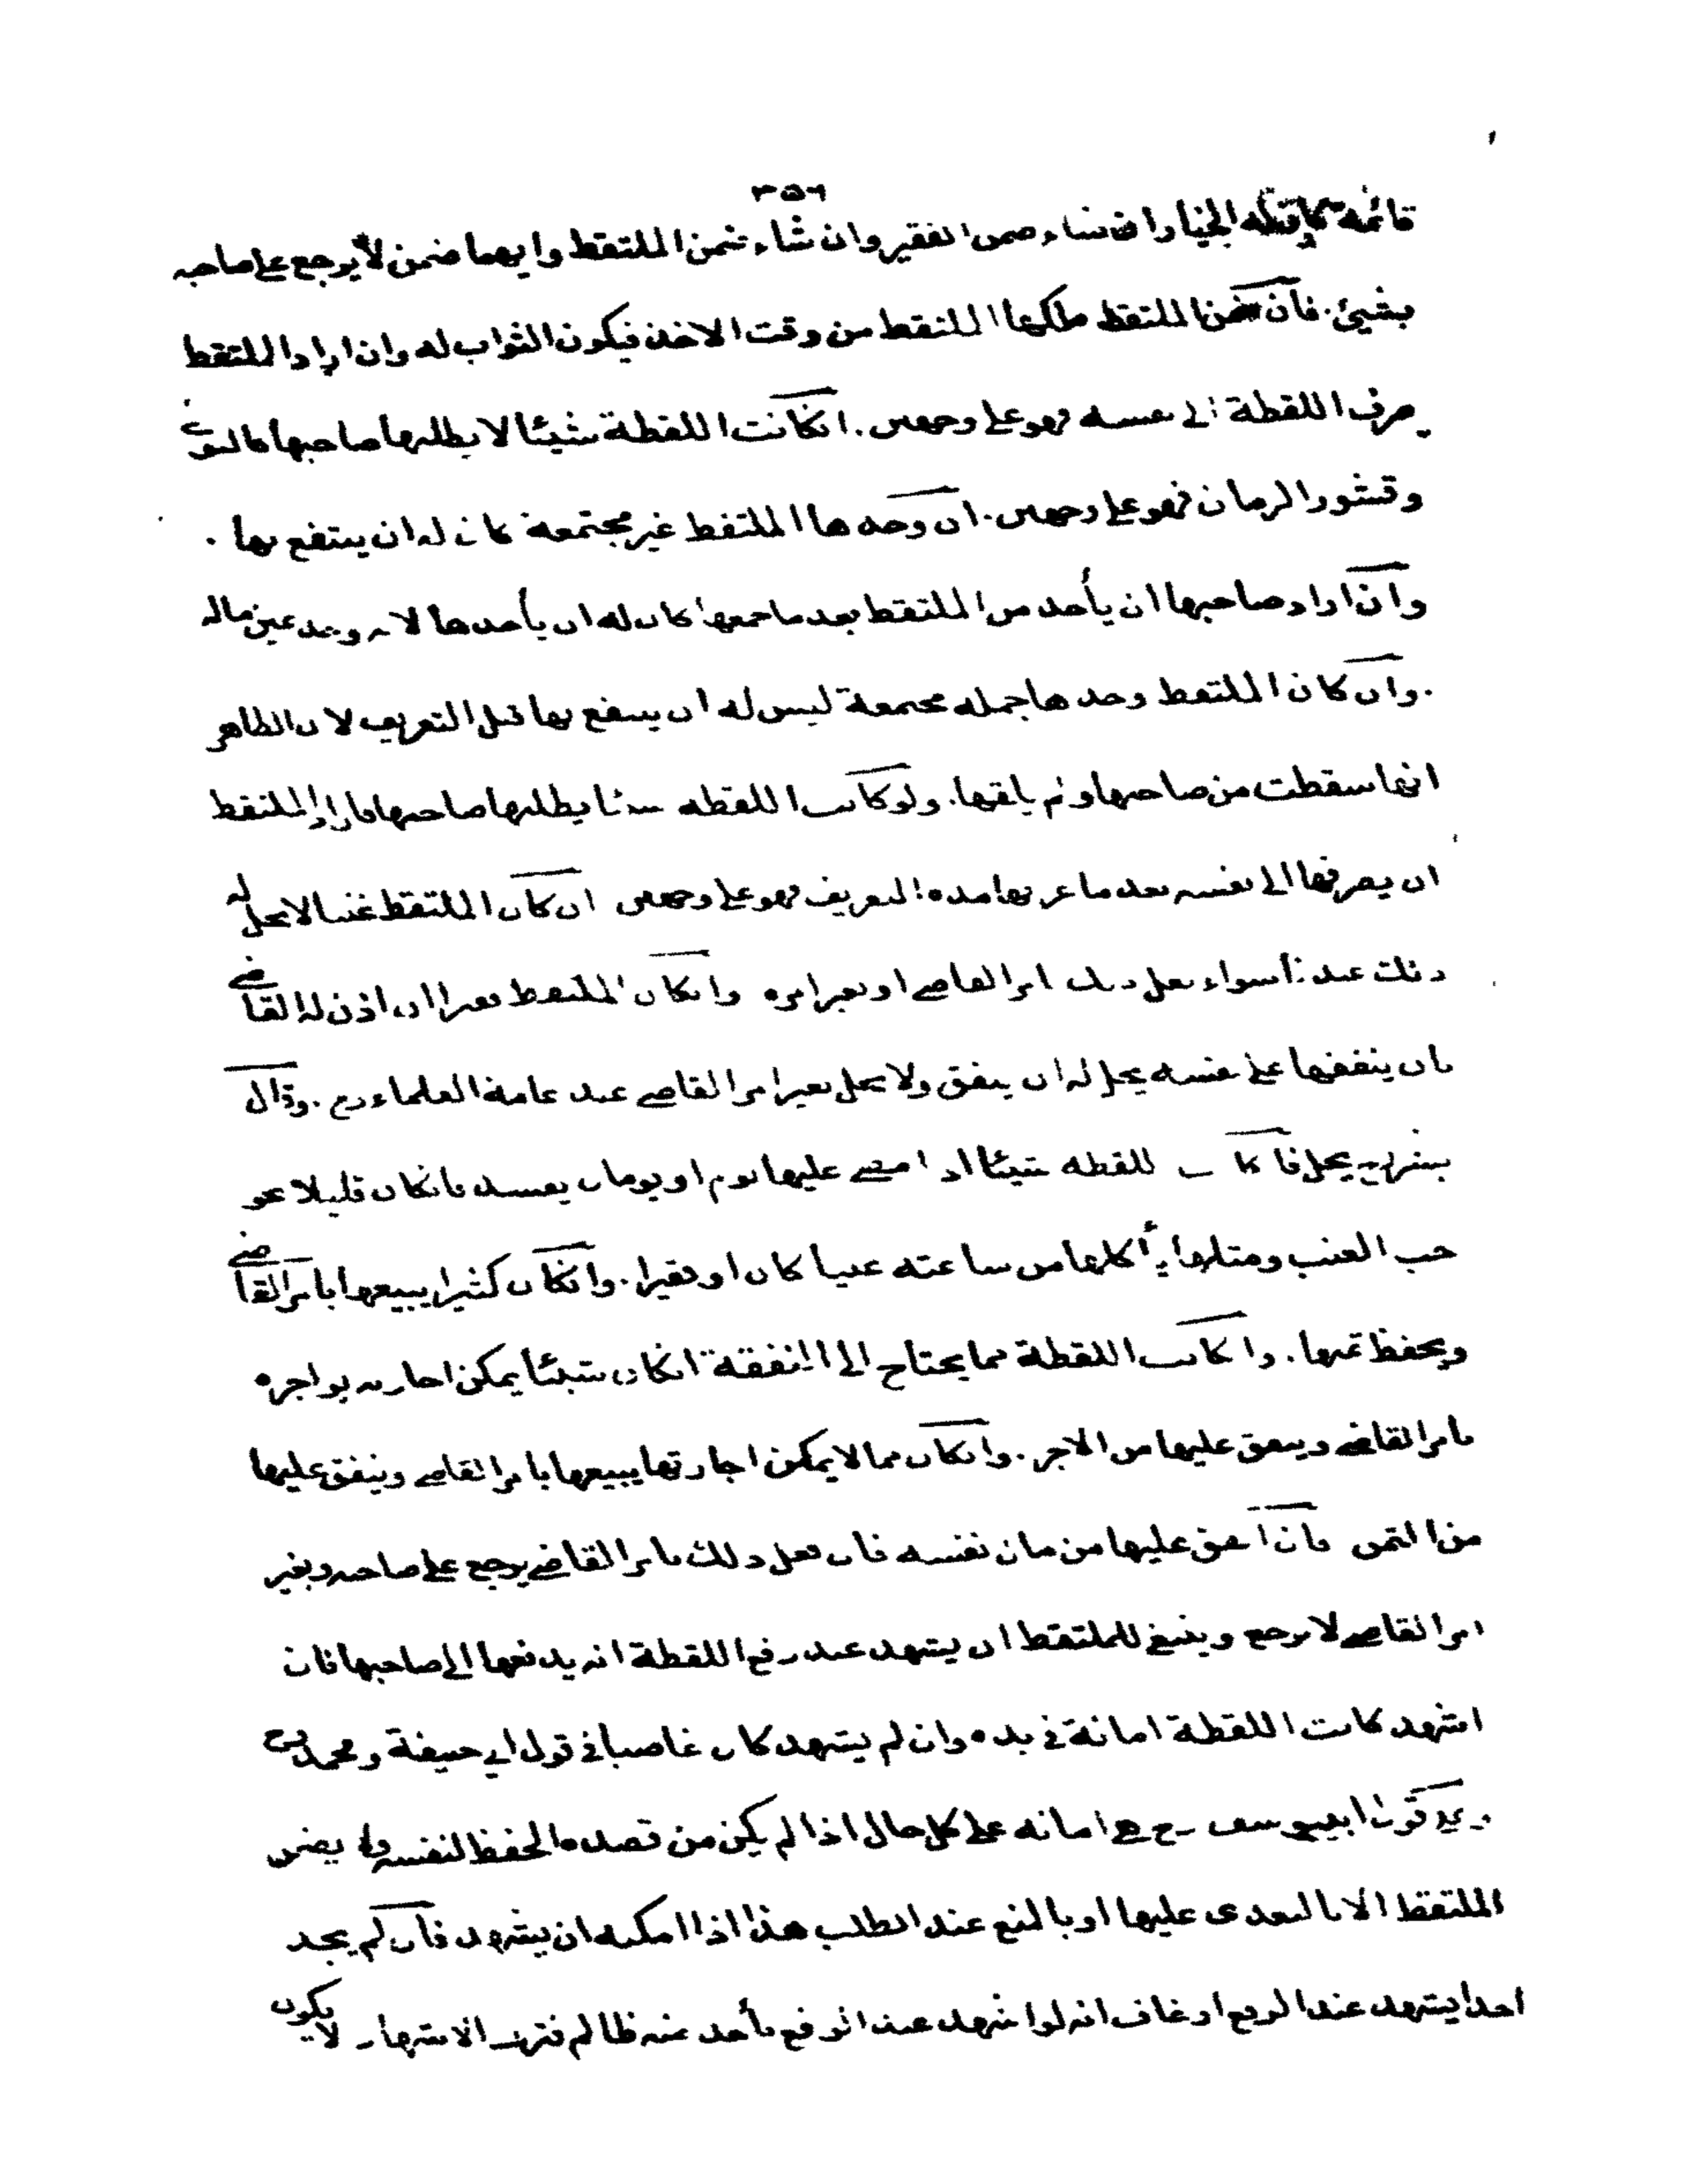 ٣٥٦
قائمة فله الخيار ان شاء ضمن الفقير وان شاء ضمن الملتقط وايهما ضمن لا يرجع على صاحبه
بشيئ. فان ضمن الملتقط ملكها الملتقط من وقت الاخذ فيكون الثواب له وان اراد الملتقط
صرف اللقطة الى نفسه فهو على وجهين. انكانت اللقطة شيئا لا يطلبها صاحبها كالنوى
وقشور الرمان فهو على وجهين. ان وجدها الملتقط غير مجتمعة كان له ان ينتفع بها.
وان اراد صاحبها ان يأخذ من الملتقط بعد ما جمعها كان له ان يأخذها لانه وجد عين ماله
. وان كان الملتقط وجدها جملة مجتمعة ليس له ان ينتفع بها قبل التعريف لان الظاهر
انها سقطت من صاحبها ولم يلقها. ولو كانت اللقطه شيئا يطلبها صاحبها فاراد الملتقط
ان يصرفها الى نفسه بعد ما عرفها مدة التعريف فهو على وجهين ان كان الملتقط غنيا لا يحل له
ذلك عندنا سواء فعل ذلك بامر القاضى او بغير امره وانكان الملتقط فقيرا ان اذن له القاضى
بان ينفقها على نفسه يحل له ان ينفق ولا يحل بغير امر القاضى عند عامة العلماء رح. وقال
بشر رح يحل فان كانت اللقطه شيئا اذا مضى عليها يوم او يومان يفسد فانكان قليلا نحو
حب العنب ومثلها يأكلها من ساعته غنيا كان او فقيرا. وانكان كثيرا يبيعها بامر القاضى
ويحفظ ثمنها. وان كانت اللقطة مما يحتاج الى النفقة انكان شيئا يمكن اجارته يواجره
بامر القاضى وينفق عليها من الاجر. وانكان مما لا يمكن اجارتها يبيعها بامر القاضى وينفق عليها
من الثمن فان انفق عليها من مال نفسه فان فعل ذلك بامر القاضى يرجع على صاحبه وبغير
امر القاضى لا يرجع وينبغى للملتقط ان يشهد عند رفع اللقطة انه يدفعها الى صاحبها فان
اشهد كانت اللقطة امانة فى يده وان لم يشهد كان غاصبا فى قول ابى حنيفة ومحمد رح
قول ابى يوسف رح هى امانه على كل حال اذا لم يكن من قصده الحفظ لنفسه ولا يضمن
الملتقط الا بالتعدى عليها او بالمنع عند الطلب هذا اذا امكنه ان يشهد فان لم يجد
احدا يشهد عند الرفع او خاف انه لو اشهد عند الرفع يأخذ منه ظالم فترك الاشهاد لا يكون